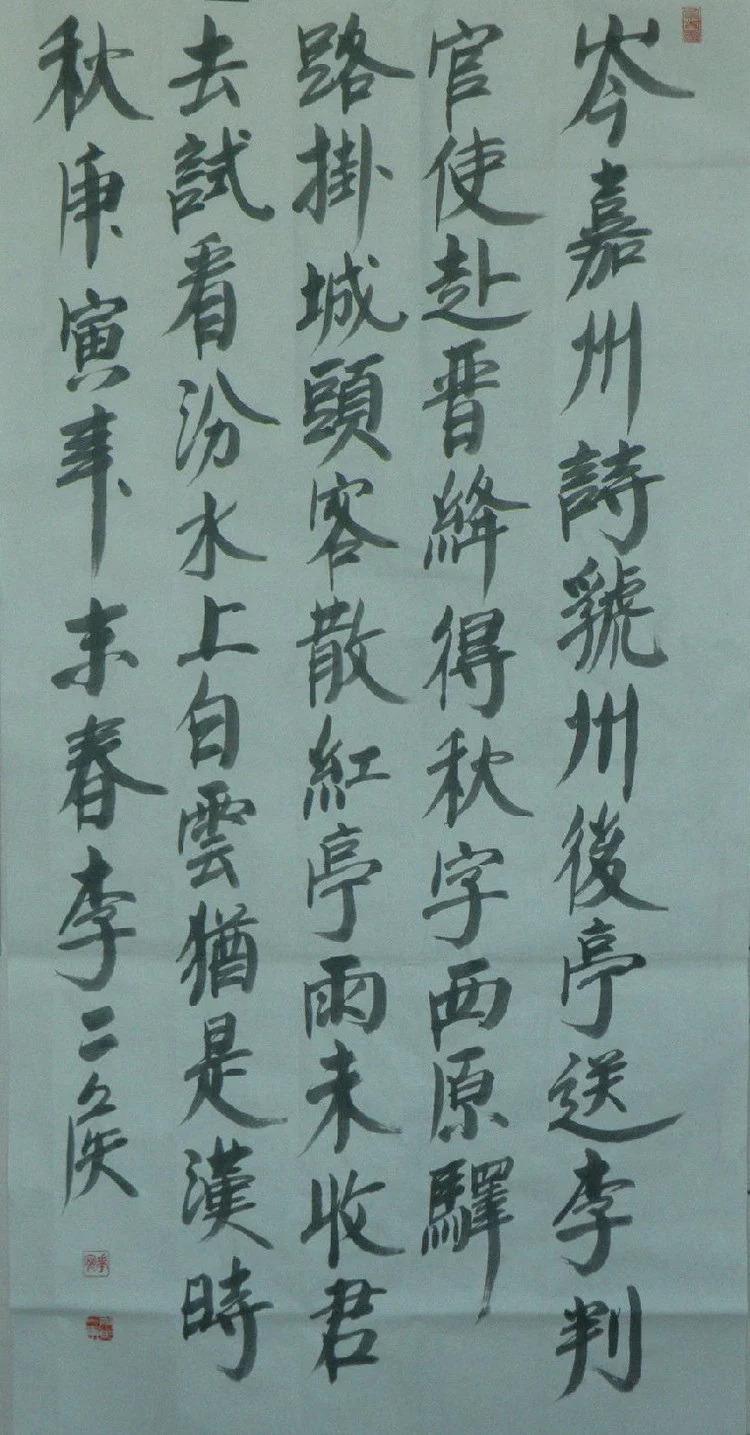 岑嘉州詩虢州後亭送李判
官使赴晋絳得秋字西原驛
路掛城頭客散紅亭雨未收君
去試看汾水上白雲猶是漢時
秋庚寅年末春李二